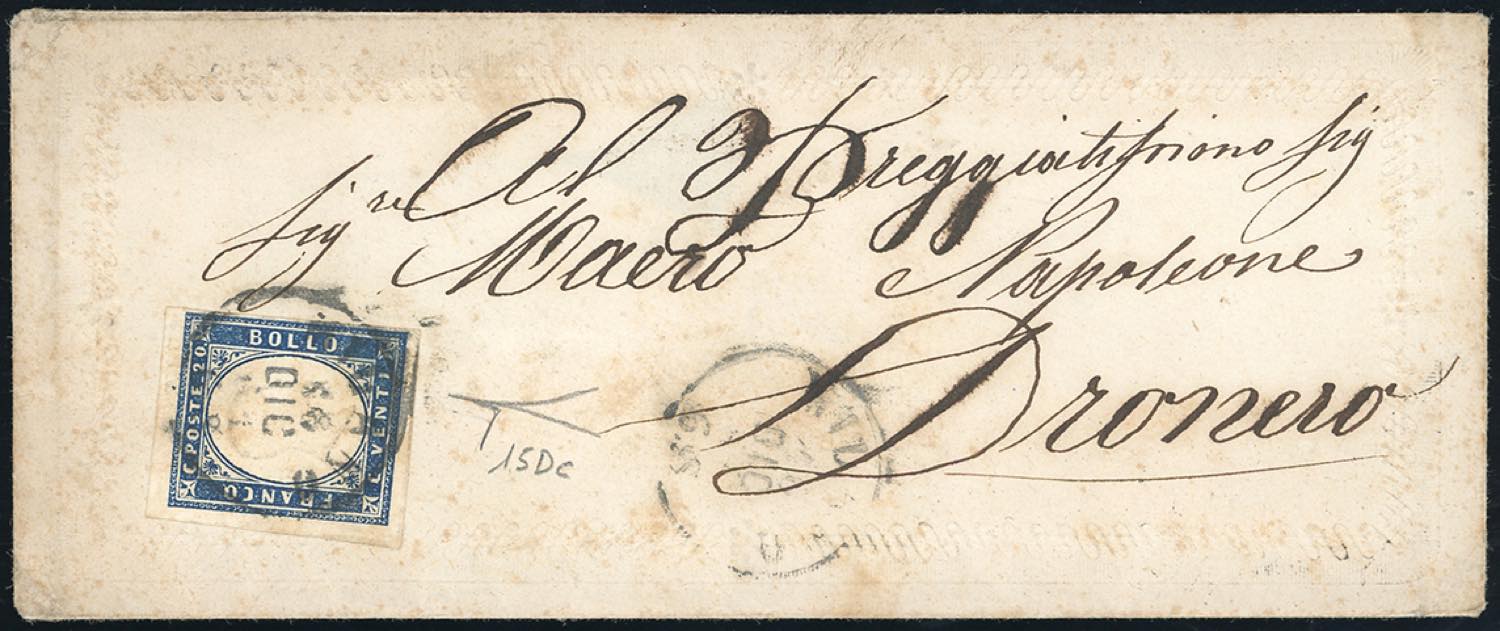 Al Preggiatissimo Sig
Sig re Maero Napoleone
Dronero
BOLLO
C POSTE 20
C VENTI
FRANCO
GIU
GIU
15Dc